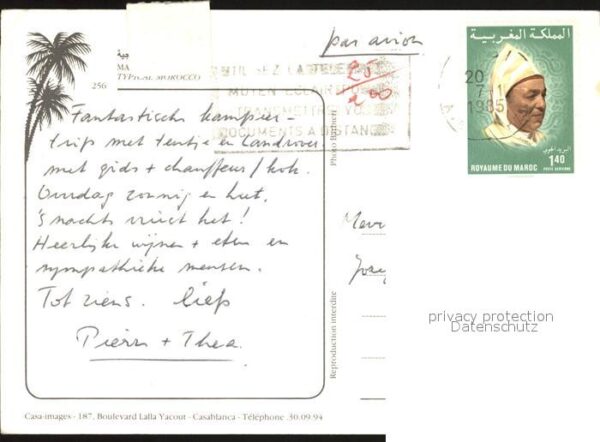 MA
TYPICAL MOROCCO
256
par avion
25
200
UTILISEZ LA TELECOPIE
MOYEN ECLAIR POUR
TRANSMETTRE VOS
DOCUMENTS A DISTANCE
20
7
1985
المملكة المغربية
البريد الجوي
1,40
ROYAUME DU MAROC
POSTE AERIENNE
Fantastische kampeer-
trip met tentje en Landrover
met gids + chauffeur/kok.
Overdag zonnig en heet.
's nachts vriest het!
Heerlijke wijnen + eten en
sympathieke mensen.
Tot ziens. liefs
Pierre + Thea
Mevr
Photo Barbieri
Reproduction interdite
privacy protection
Datenschutz
Casa-images - 187, Boulevard Lalla Yacout - Casablanca - Téléphone .30.09.94